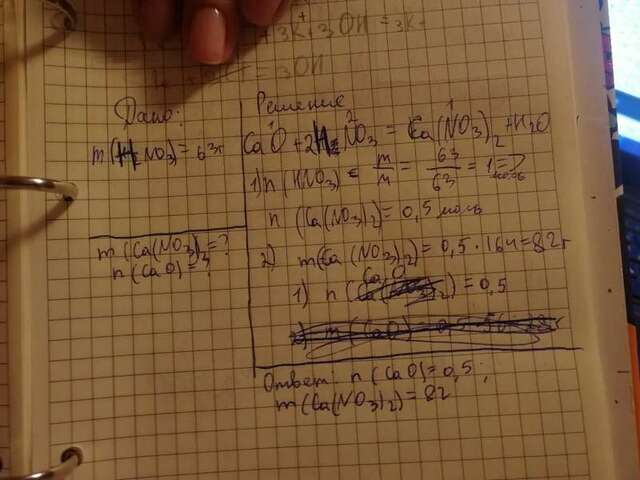 +3K⁺+3OH=3K+
=3OH
Дано:
m(HNO₃)=63г
m(Ca(NO₃)₂=?
n(CaO)=?
Решение
1 2 1
CaO+2HNO₃=Ca(NO₃)₂+H₂O
1) n(HNO₃)= m/M = 63/63 = 1 моль =>
n(Ca(NO₃)₂)=0,5 моль
2) m(Ca(NO₃)₂)=0,5·164=82г
1) n(CaO)=0,5
Ответ: n(CaO)=0,5;
m(Ca(NO₃)₂)=82